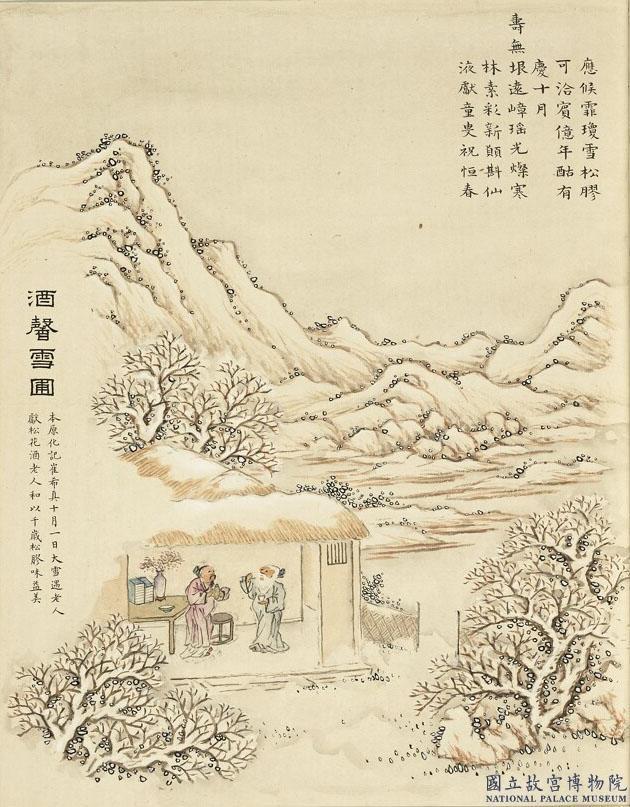 應候霏瓊雪松膠
可洽賓億年酤有
慶十月
壽無垠遠嶂瑤光燦寒
林素彩新願斟仙
液獻童叟祝恒春
酒馨雪圃
本原化記崔希真十月一日大雪遇老人
獻松花酒老人和以千歲松膠味益美
國立故宮博物院
NATIONAL PALACE MUSEUM